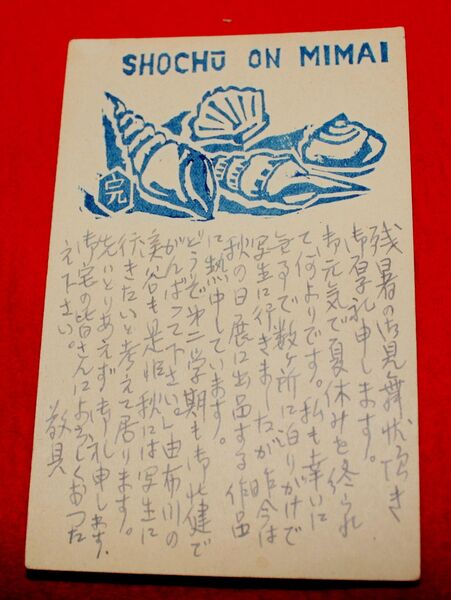 SHOCHŪ ON MIMAI
完
残暑の御見舞状頂き
御礼申します。
お元気で夏休みを終られ
て何よりです。私も幸いに
数ヶ所に泊りがけで
写生に行きましたが昨今は
秋の日展に出品する作品
に熱中しています。
どうぞ第二学期も御壮健で
がんばって下さい。由布川の
渓谷も是非秋には写生に
行きたいと考えて居ります。
先はとりあえず御礼申します。
御宅の皆さんによろしくおつた
え下さい。
敬具